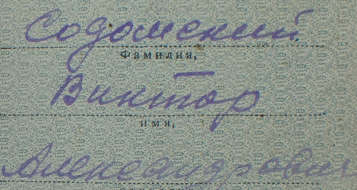 Содомский
Фамилия,
Виктор
имя,
Александрович